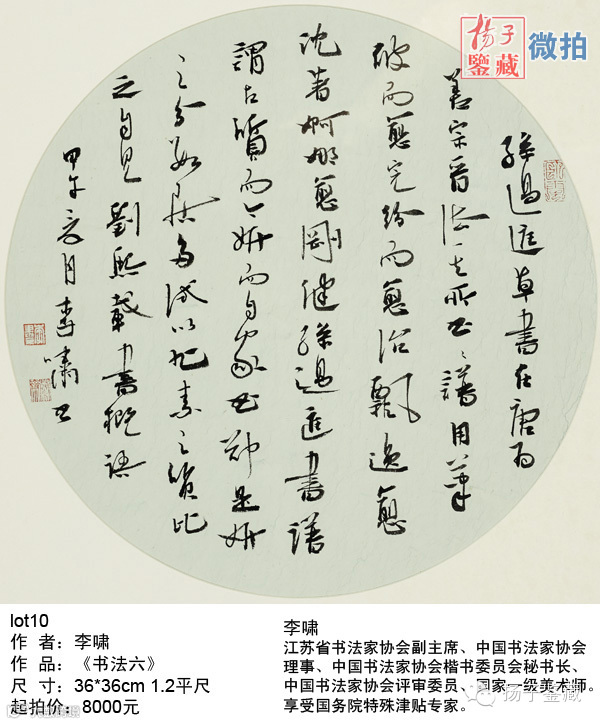 杨子
鉴藏
微拍
孫過庭草書在唐為
善宗晉法其所書書譜用筆
破而愈完紛而愈治飄逸愈
沈著婀娜愈剛健孫過庭書譜
謂古質而今妍而自家書却是妍
之分數居多試以旭素之質比
之自見劉熙載書概語
甲午夏月李嘯書
lot10
作 者：李啸
作 品：《书法六》
尺 寸：36*36cm 1.2平尺
起拍价：8000元
李啸
江苏省书法家协会副主席、中国书法家协会
理事、中国书法家协会楷书委员会秘书长、
中国书法家协会评审委员、国家一级美术师。
享受国务院特殊津贴专家。
扬子鉴藏